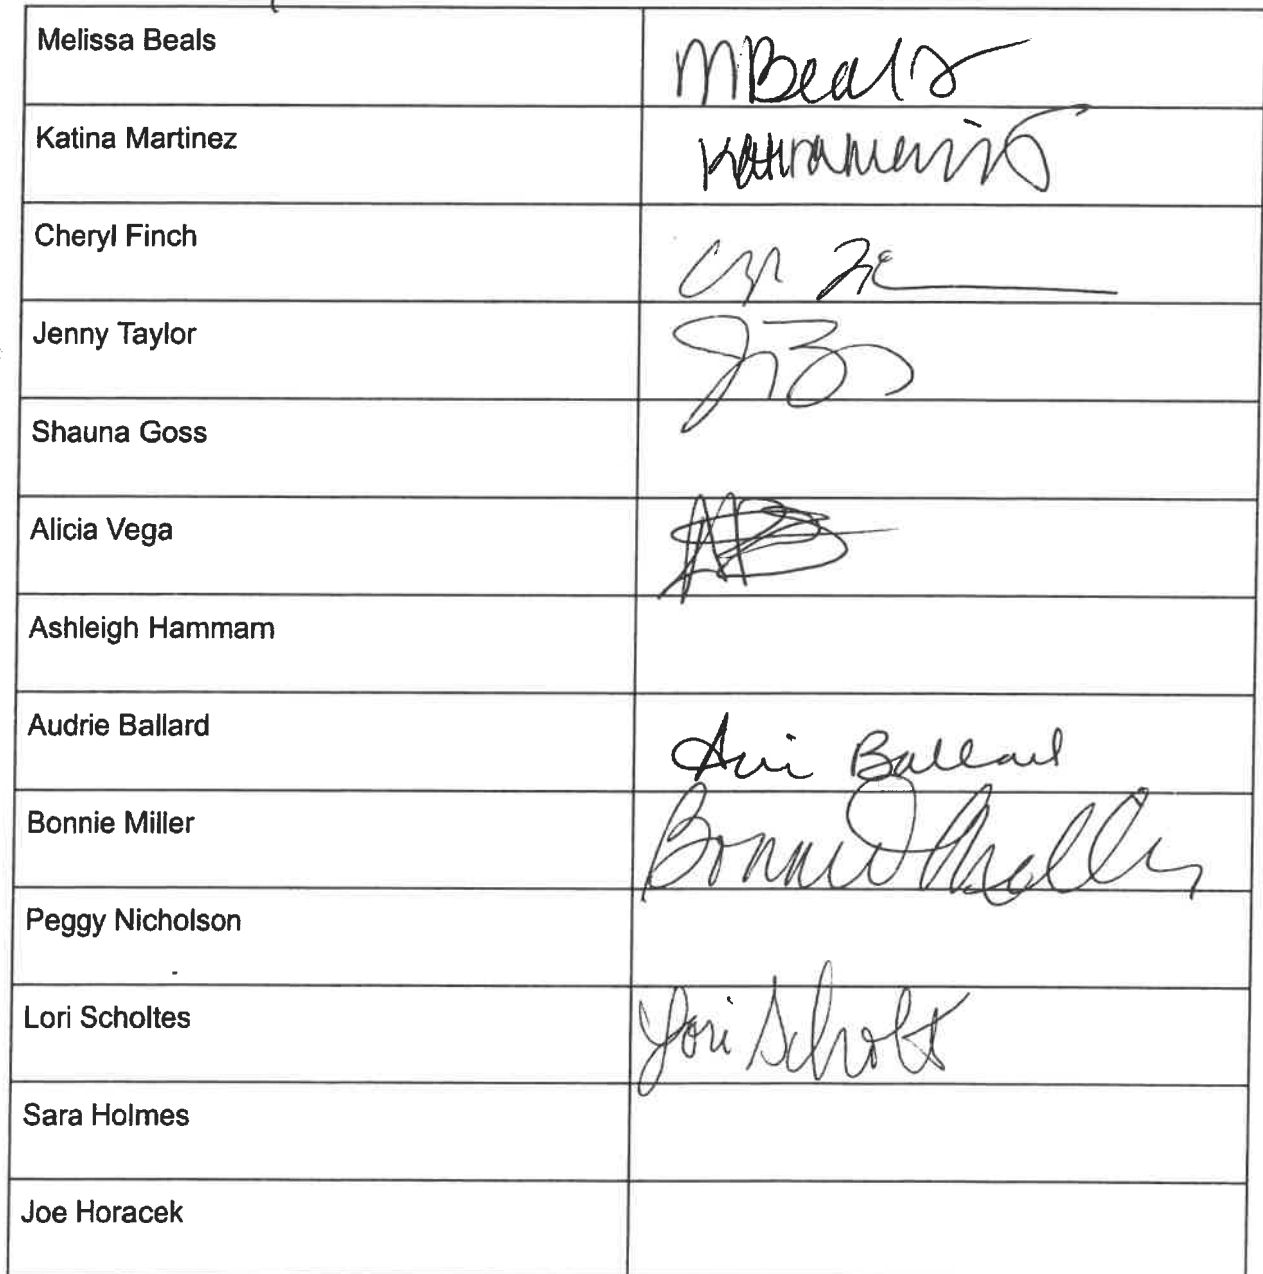 Melissa Beals MBeals
Katina Martinez
Cheryl Finch
Jenny Taylor
Shauna Goss
Alicia Vega
Ashleigh Hammam
Audrie Ballard Ballard
Bonnie Miller Bonnie Miller
Peggy Nicholson
Lori Scholtes Lori Scholt
Sara Holmes
Joe Horacek